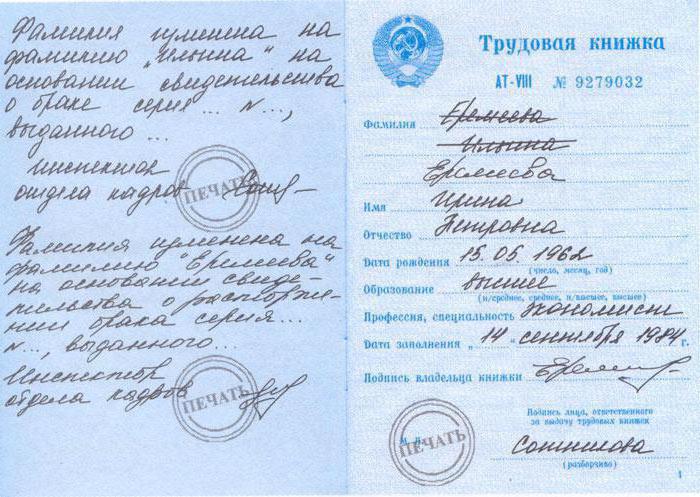 Фамилия изменена на
фамилию „Ильина“ на
основании свидетельства
о браке серия... №...,
выданного ...
Инспектор
отдела кадров
ПЕЧАТЬ
Фамилия изменена на
фамилию "Еремеева"
на основании свиде-
тельства о расторже-
нии брака серия...
№..., выданного...
Инспектор
отдела кадров
ПЕЧАТЬ
Трудовая книжка
АТ-VIII № 9279032
Фамилия Еремеева
Ильина
Еремеева
Имя Ирина
Отчество Петровна
Дата рождения 15.05.1962
(число, месяц, год)
Образование высшее
(н/среднее, среднее, н/высшее, высшее)
Профессия, специальность экономист
Дата заполнения „14“ сентября 1984 г.
Подпись владельца книжки
Подпись лица, ответственного
за выдачу трудовых книжек
М. П.
ПЕЧАТЬ
(разборчиво)
1